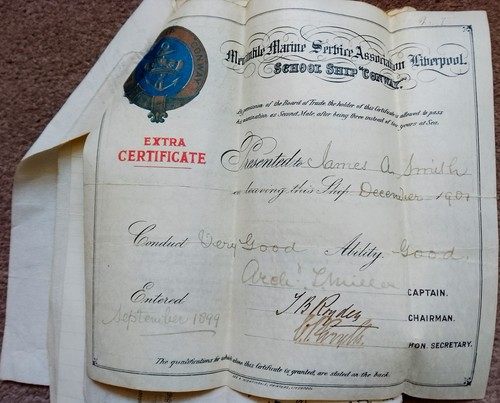 Mercantile Marine Service Association Liverpool.
SCHOOL SHIP "CONWAY"
By permission of the Board of Trade the holder of this Certificate is allowed to pass
Examination as Second Mate after being three instead of four years at Sea.
EXTRA
CERTIFICATE
Presented to James A. Smith
on leaving this Ship December 1901
Conduct Very Good Ability Good.
Arch. Miller
CAPTAIN.
Entered
September 1899
T B Royden
CHAIRMAN.
HON. SECRETARY.
The qualifications for which alone this Certificate is granted, are stated on the back.